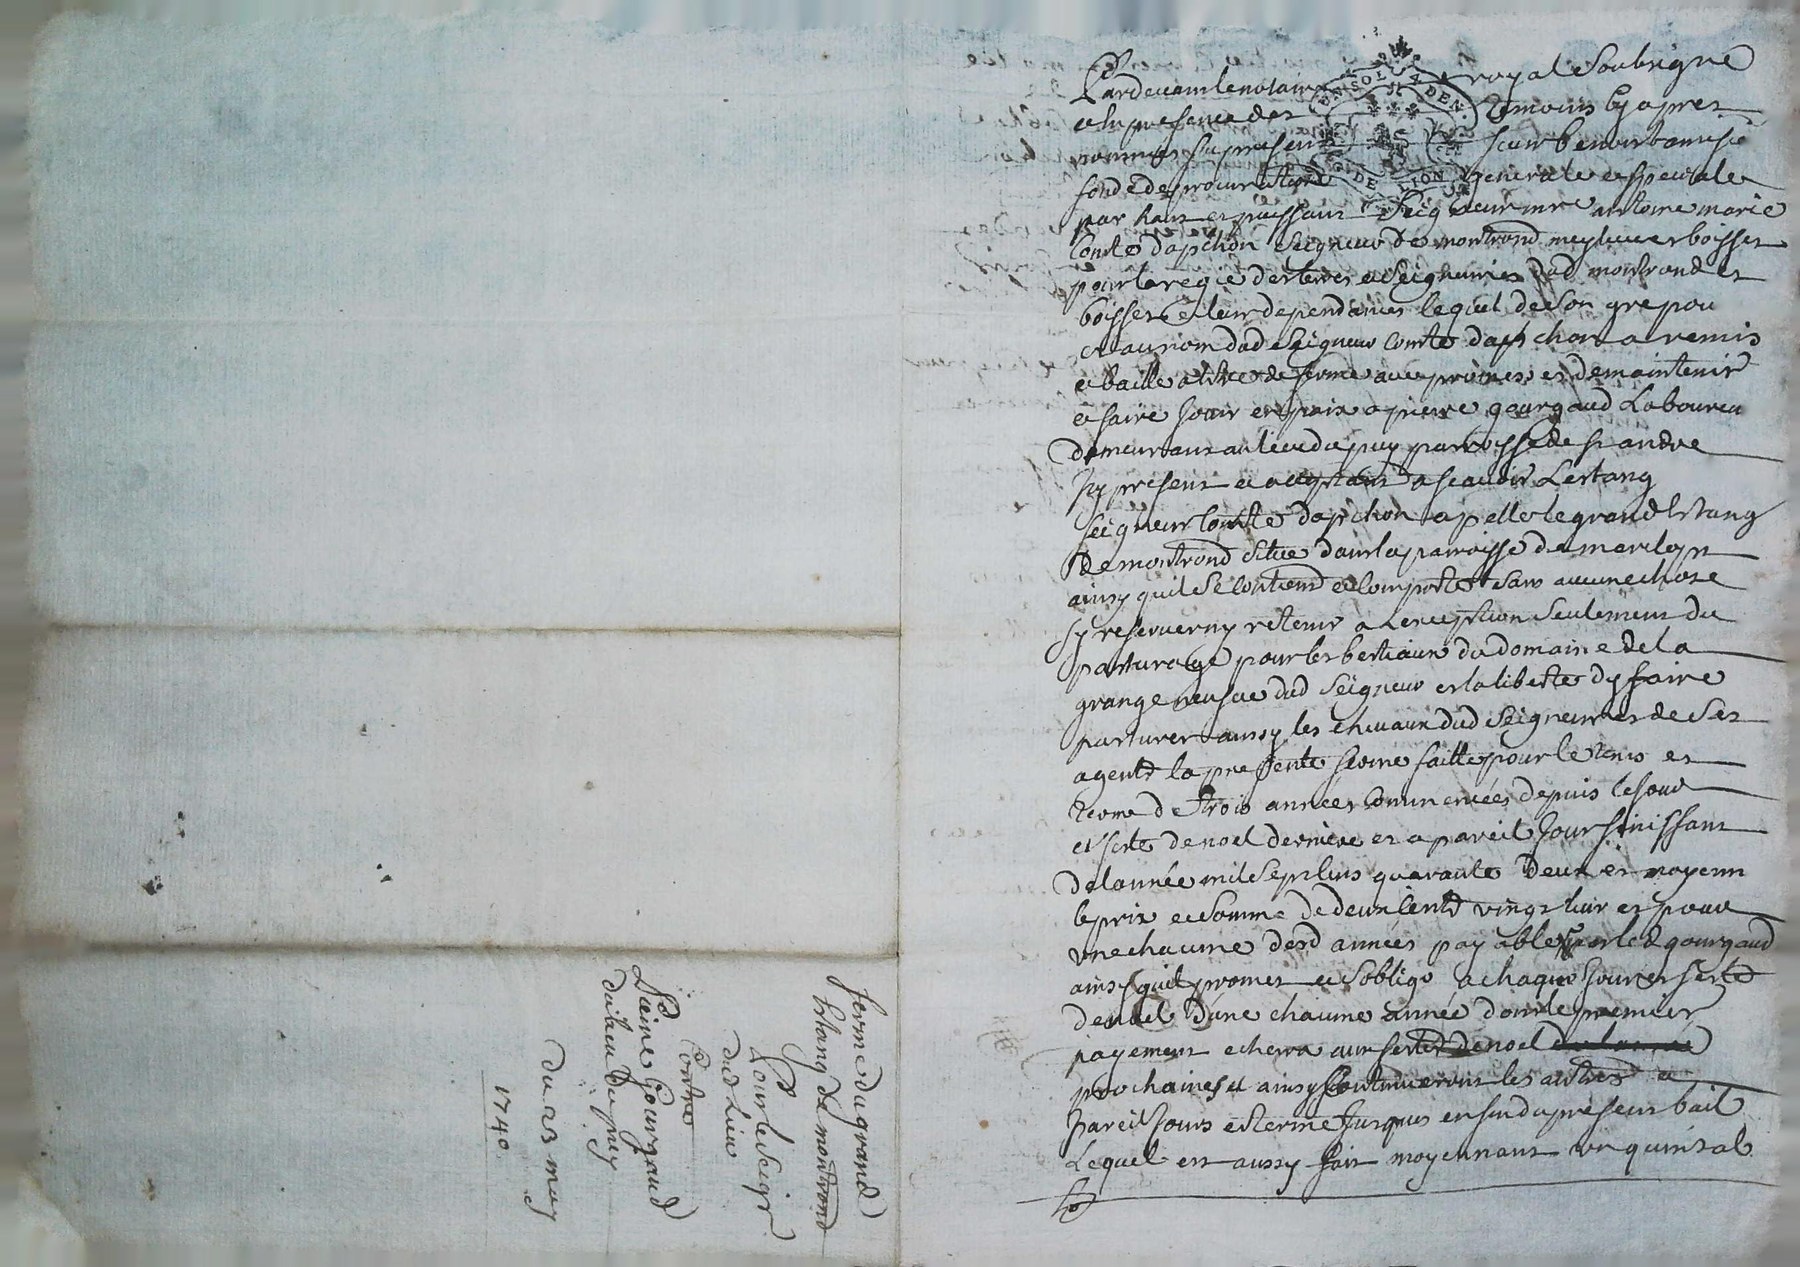 Pardevant le notaire royal Soubsigné
et en presence des temoins cy apres
nommes fu present sieur benoit
fondé de procuration generalle et specialle
par haut et puissant Seigneur mre antoine marie
Comte dapchon Seigneur de montrond meylieu et boisset
pour la regie des terres et Seigneuries dud montrond et
boisset et leur dependances lequel de Son gre pou
et au nom dud Seigneur Comte dapchon a remis
et baille a titre de ferme avec promesse de maintenir
et faire jouir en paix a pierre gourgaud Laboureu
demeurant au lieu du puy parroisse de st andre
jcy present et acceptant a scavoir Lestang
Seigneur Comte dapchon apelle le grand Estang
de montrond situe dans la paroisse de
ainsy quil se Contient et Comporte sans aucune chose
sy reserver ny retenir a Lexception Seulement du
pasturage pour les bestiaux du domaine de la
grange neufve dud Seigneur et la liberte dy faire
pasturer aussy les chevaux dud Seigneur et de Ses
agents la presente ferme faitte pour le tems et
terme de trois années Commencées depuis le jour
et feste de noel derniere et a pareil jour finissant
de lannée mil Sept Cens quarante Deux et moyenn
le prix et Somme de deux Cents vingt huit et pour
une chacune desd années payable par led gourgaud
ainsy quil promet et Soblige a chaque jour et feste
de noel dune chacune année dont le premier
payement echerra aux festes de noel
prochaines et ainsy Continueront les autres a
Pareil jours et terme jusques en fin du present bail
Lequel est aussy fait moyennant un quintal
ferme du grand
Estang de montrond
Pour le Seigr
dud Lieu
Contre
Pierre Gourgaud
du lieu du puy
du 23 may
1740